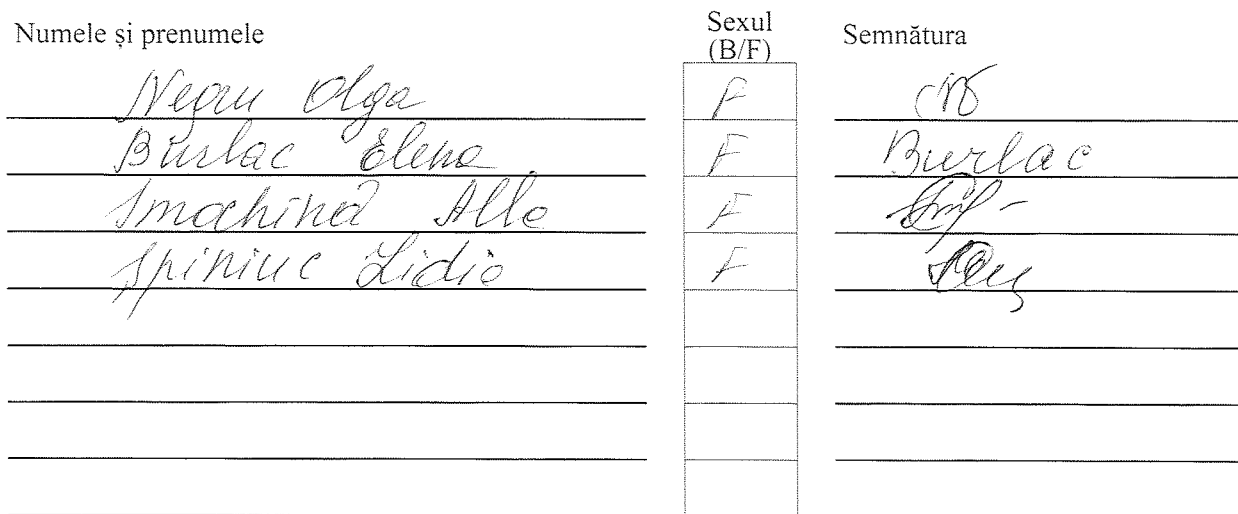 Numele și prenumele Sexul (B/F) Semnătura
Negru Olga F
Burlac Elena F Burlac
Smochină Alla F
Spiniuc Lidia F